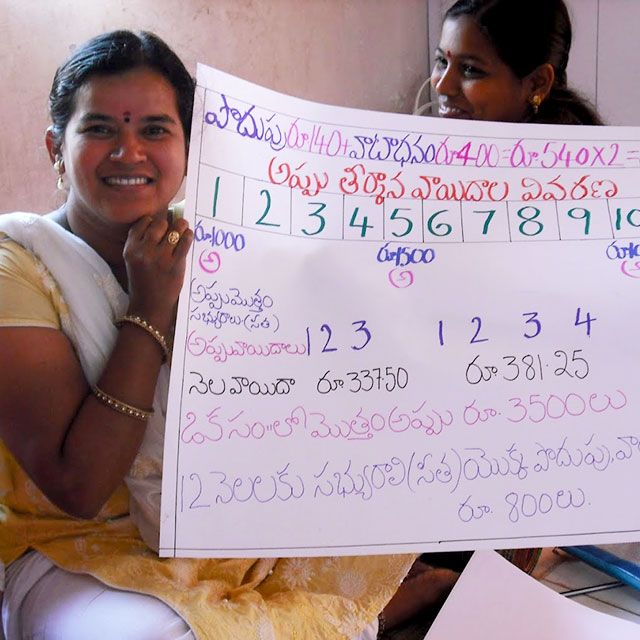 పొదుపురూ140+వాటాధనంరూ400=రూ.540X2=
అప్పు తీర్మాన వాయిదాల వివరణ
1 2 3 4 5 6 7 8 9 10
రూ1000 రూ1500
అ అ
అప్పు మొత్తం
సభ్యురాలు(సీత)
అప్పువాయిదాలు 1 2 3 1 2 3 4
నెల వాయిదా రూ 337.50 రూ 381.25
ఒక సం"లో మొత్తం అప్పు రూ. 3500లు
12 నెలలకు సభ్యురాలి(సీత)యొక్క పొదుపు,
రూ. 800లు.